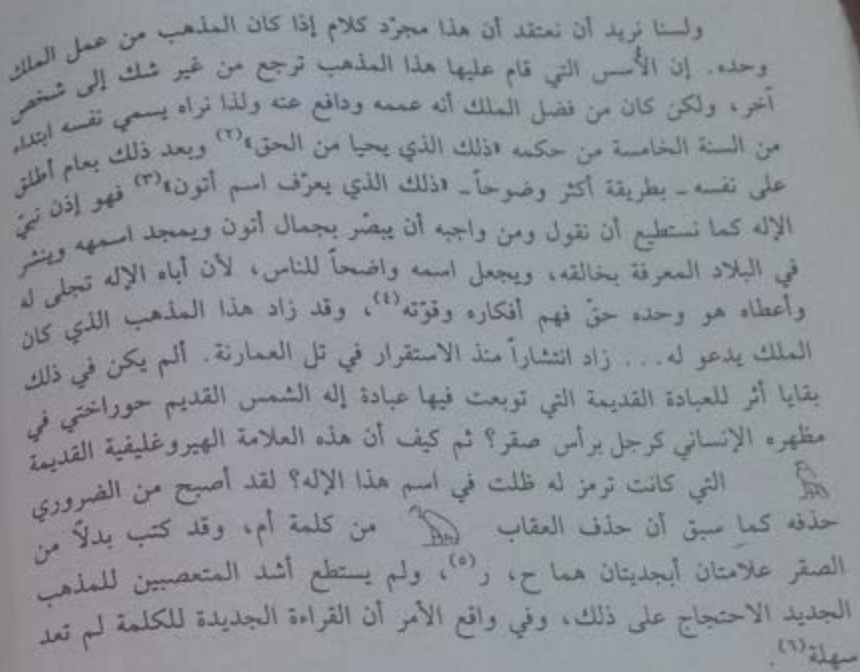 ولسنا نريد أن نعتقد أن هذا مجرّد كلام إذا كان المذهب من عمل الملك
وحده. إن الأسس التي قام عليها هذا المذهب ترجع من غير شك إلى شخص
آخر، ولكن كان من فضل الملك أنه عممه ودافع عنه ولذا تراه يسمي نفسه ابتداء
من السنة الخامسة من حكمه «ذلك الذي يحيا من الحق»(٢) وبعد ذلك بعام أطلق
على نفسه ـ بطريقة أكثر وضوحاً ـ «ذلك الذي يعرّف اسم أتون»(٣) فهو إذن نبيّ
الإله كما نستطيع أن نقول ومن واجبه أن يبصّر بجمال أتون ويمجد اسمهه وينشر
في البلاد المعرفة بخالقه، ويجعل اسمه واضحاً للناس، لأن أباه الإله تجلى له
وأعطاه هو وحده حقّ فهم أفكاره وقوّته(٤)، وقد زاد هذا المذهب الذي كان
الملك يدعو له... زاد انتشاراً منذ الاستقرار في تل العمارنة. ألم يكن في ذلك
بقايا أثر للعبادة القديمة التي توبعت فيها عبادة إله الشمس القديم حوراختي في
مظهره الإنساني كرجل برأس صقر؟ ثم كيف أن هذه العلامة الهيروغليفية القديمة
التي كانت ترمز له ظلت في اسم هذا الإله؟ لقد أصبح من الضروري
حذفه كما سبق أن حذف العقاب من كلمة أم، وقد كتب بدلاً من
الصقر علامتان أبجديتان هما ح، ر(٥)، ولم يستطع أشد المتعصبين للمذهب
الجديد الاحتجاج على ذلك، وفي واقع الأمر أن القراءة الجديدة للكلمة لم تعد
سهلة(٦).